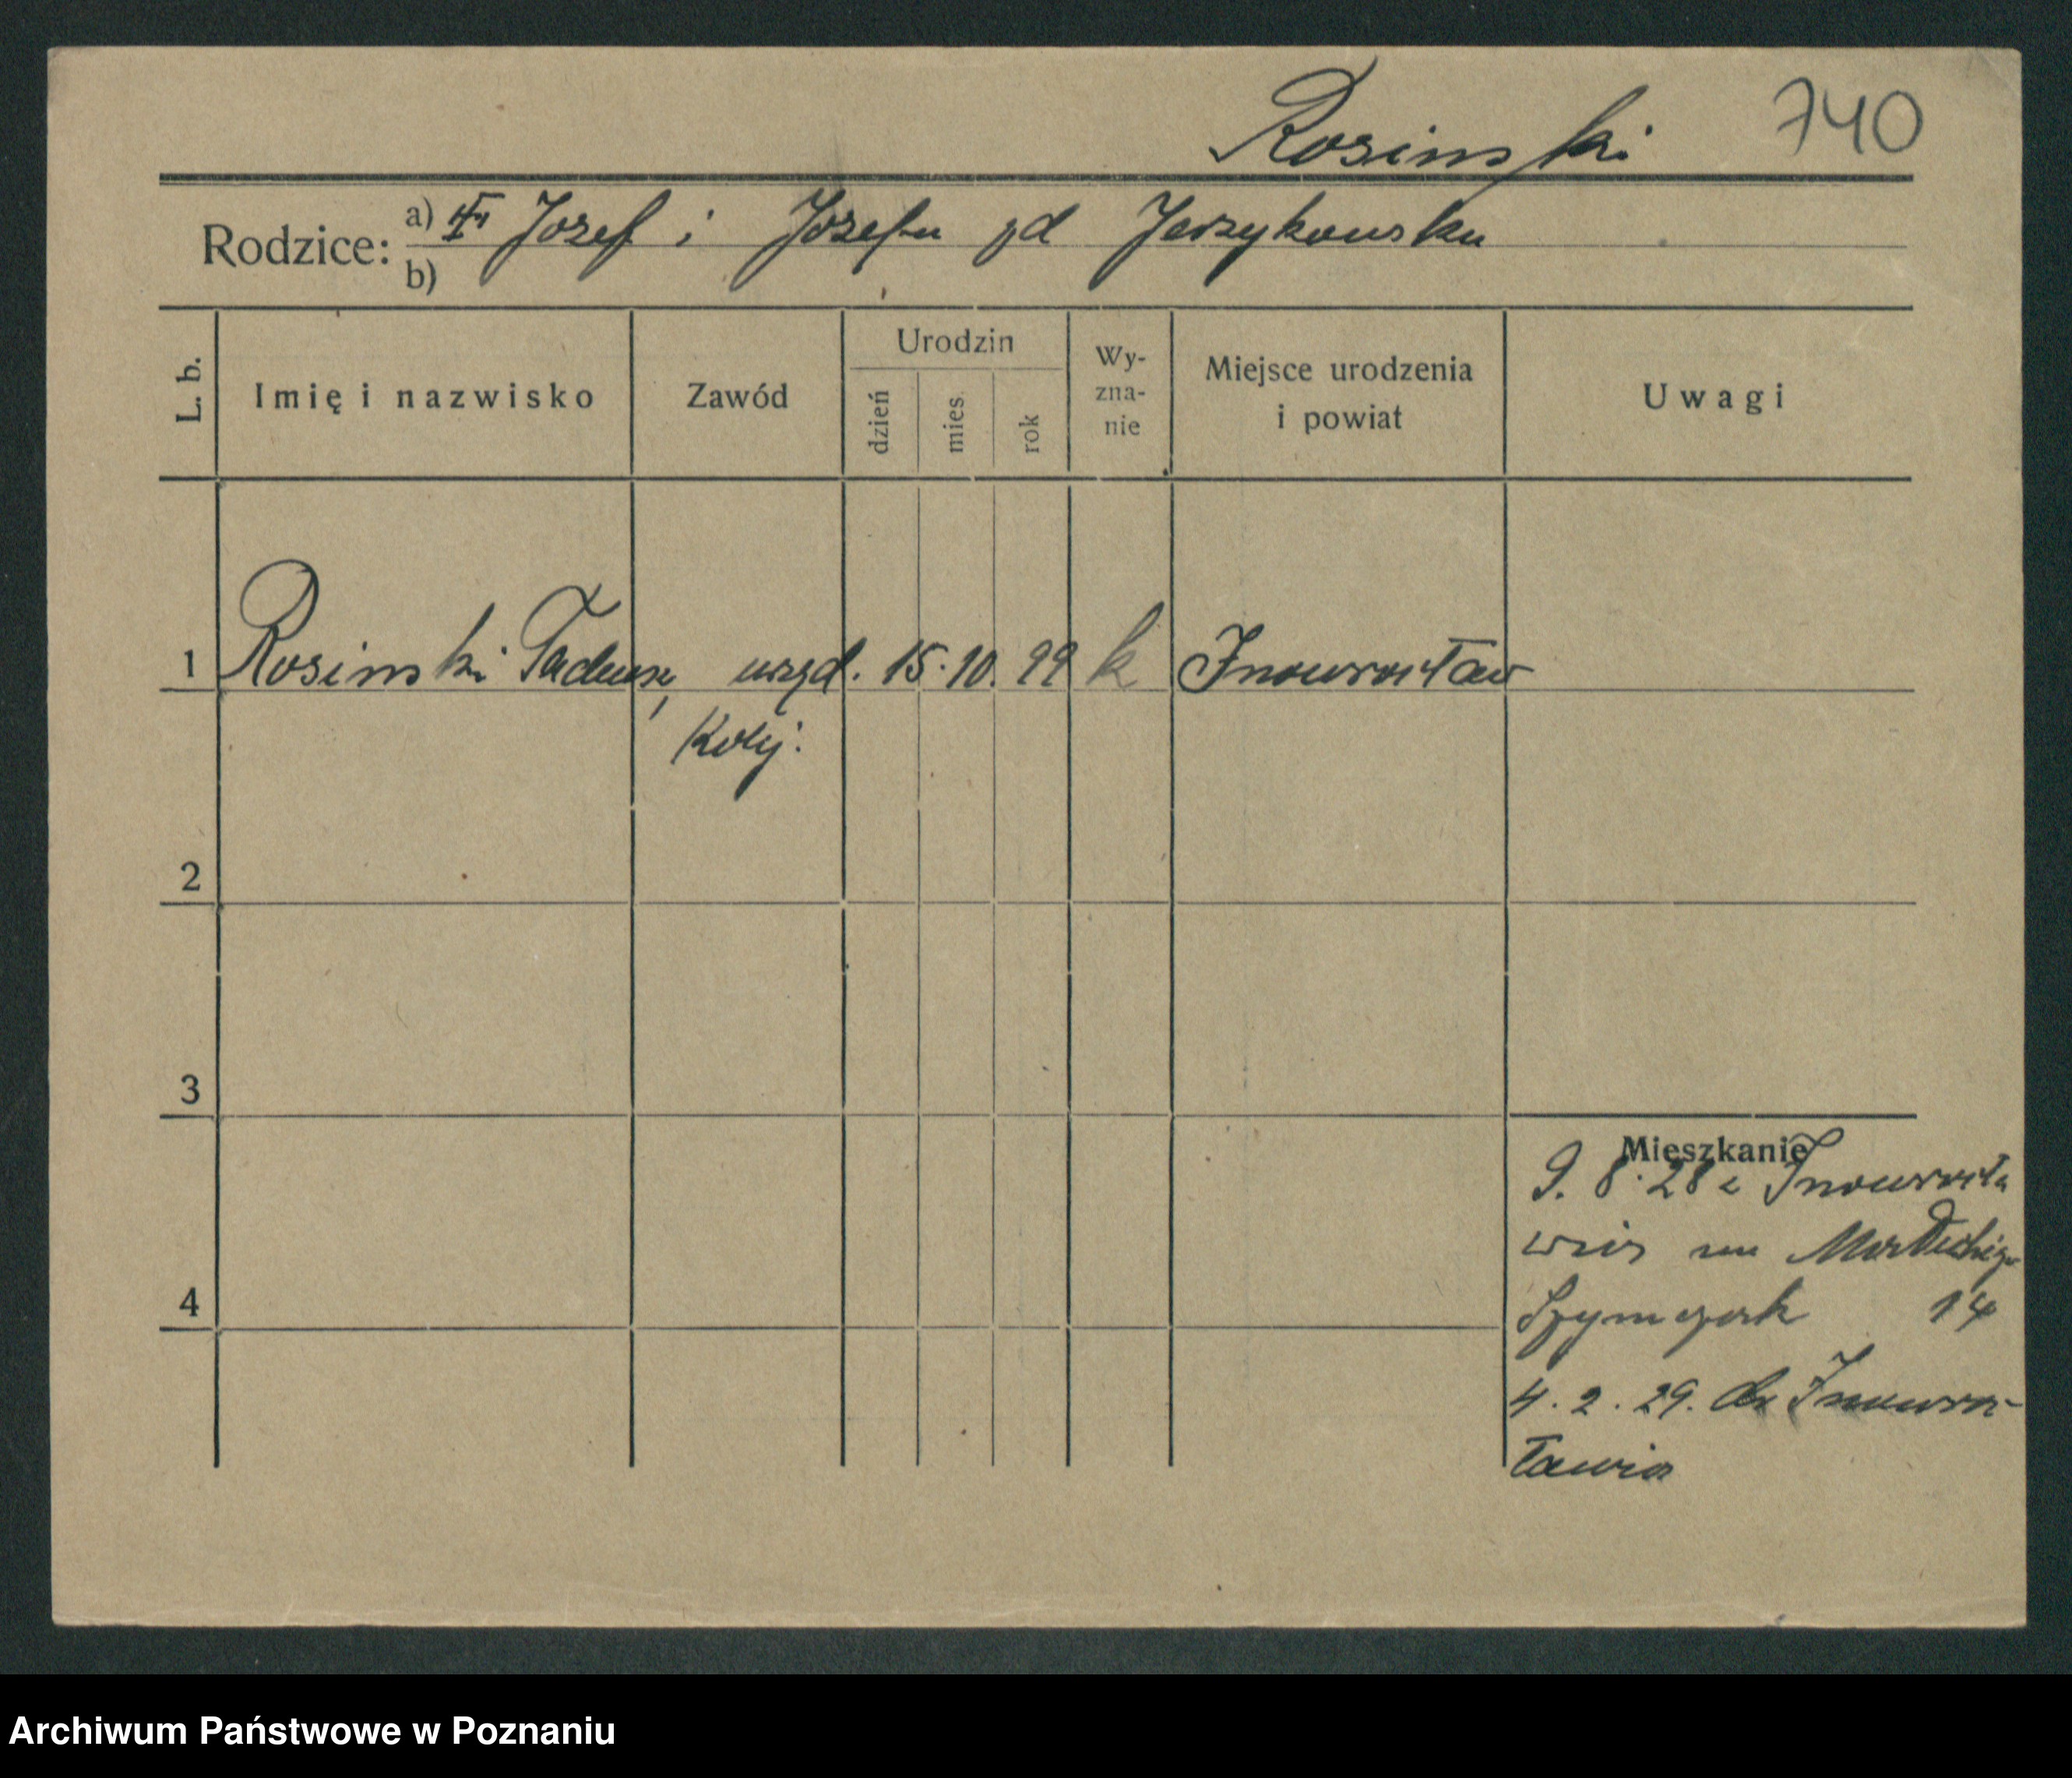 Rosinski 740
Rodzice: a) Jozef i Jozefa zd Jerzykowska
b)
L. b. Imię i nazwisko Zawód Urodzin dzień mies. rok Wy-zna-nie Miejsce urodzenia i powiat Uwagi
1 Rosinski Tadeusz, urzęd. 15. 10. 99 k Inowrocław
Kolej.
2
3
4
Mieszkanie
9. 8. 28 z Inowrocła
wia
14
4. 2. 29. do Inowro-
cławia
Archiwum Państwowe w Poznaniu